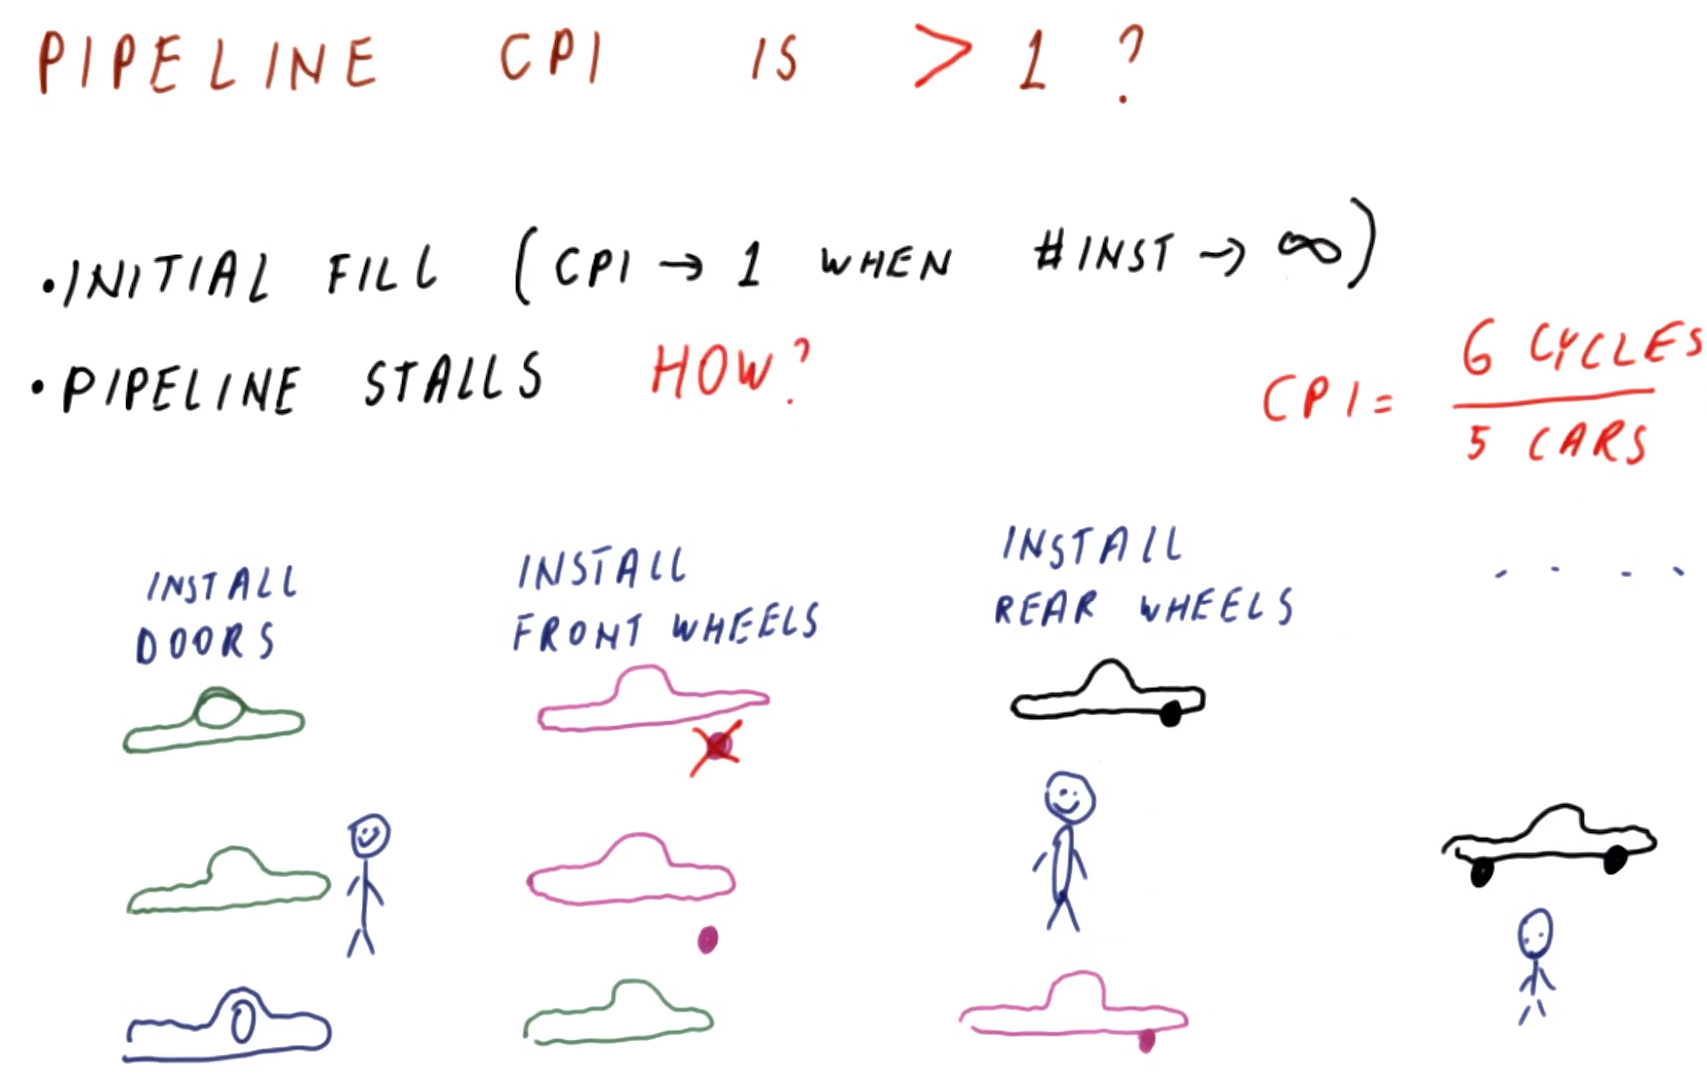 PIPELINE CPI IS > 1 ?
• INITIAL FILL (CPI → 1 WHEN #INST → ∞)
• PIPELINE STALLS HOW?
CPI = 6 CYCLES
5 CARS
INSTALL
DOORS
INSTALL
FRONT WHEELS
INSTALL
REAR WHEELS
. . . .